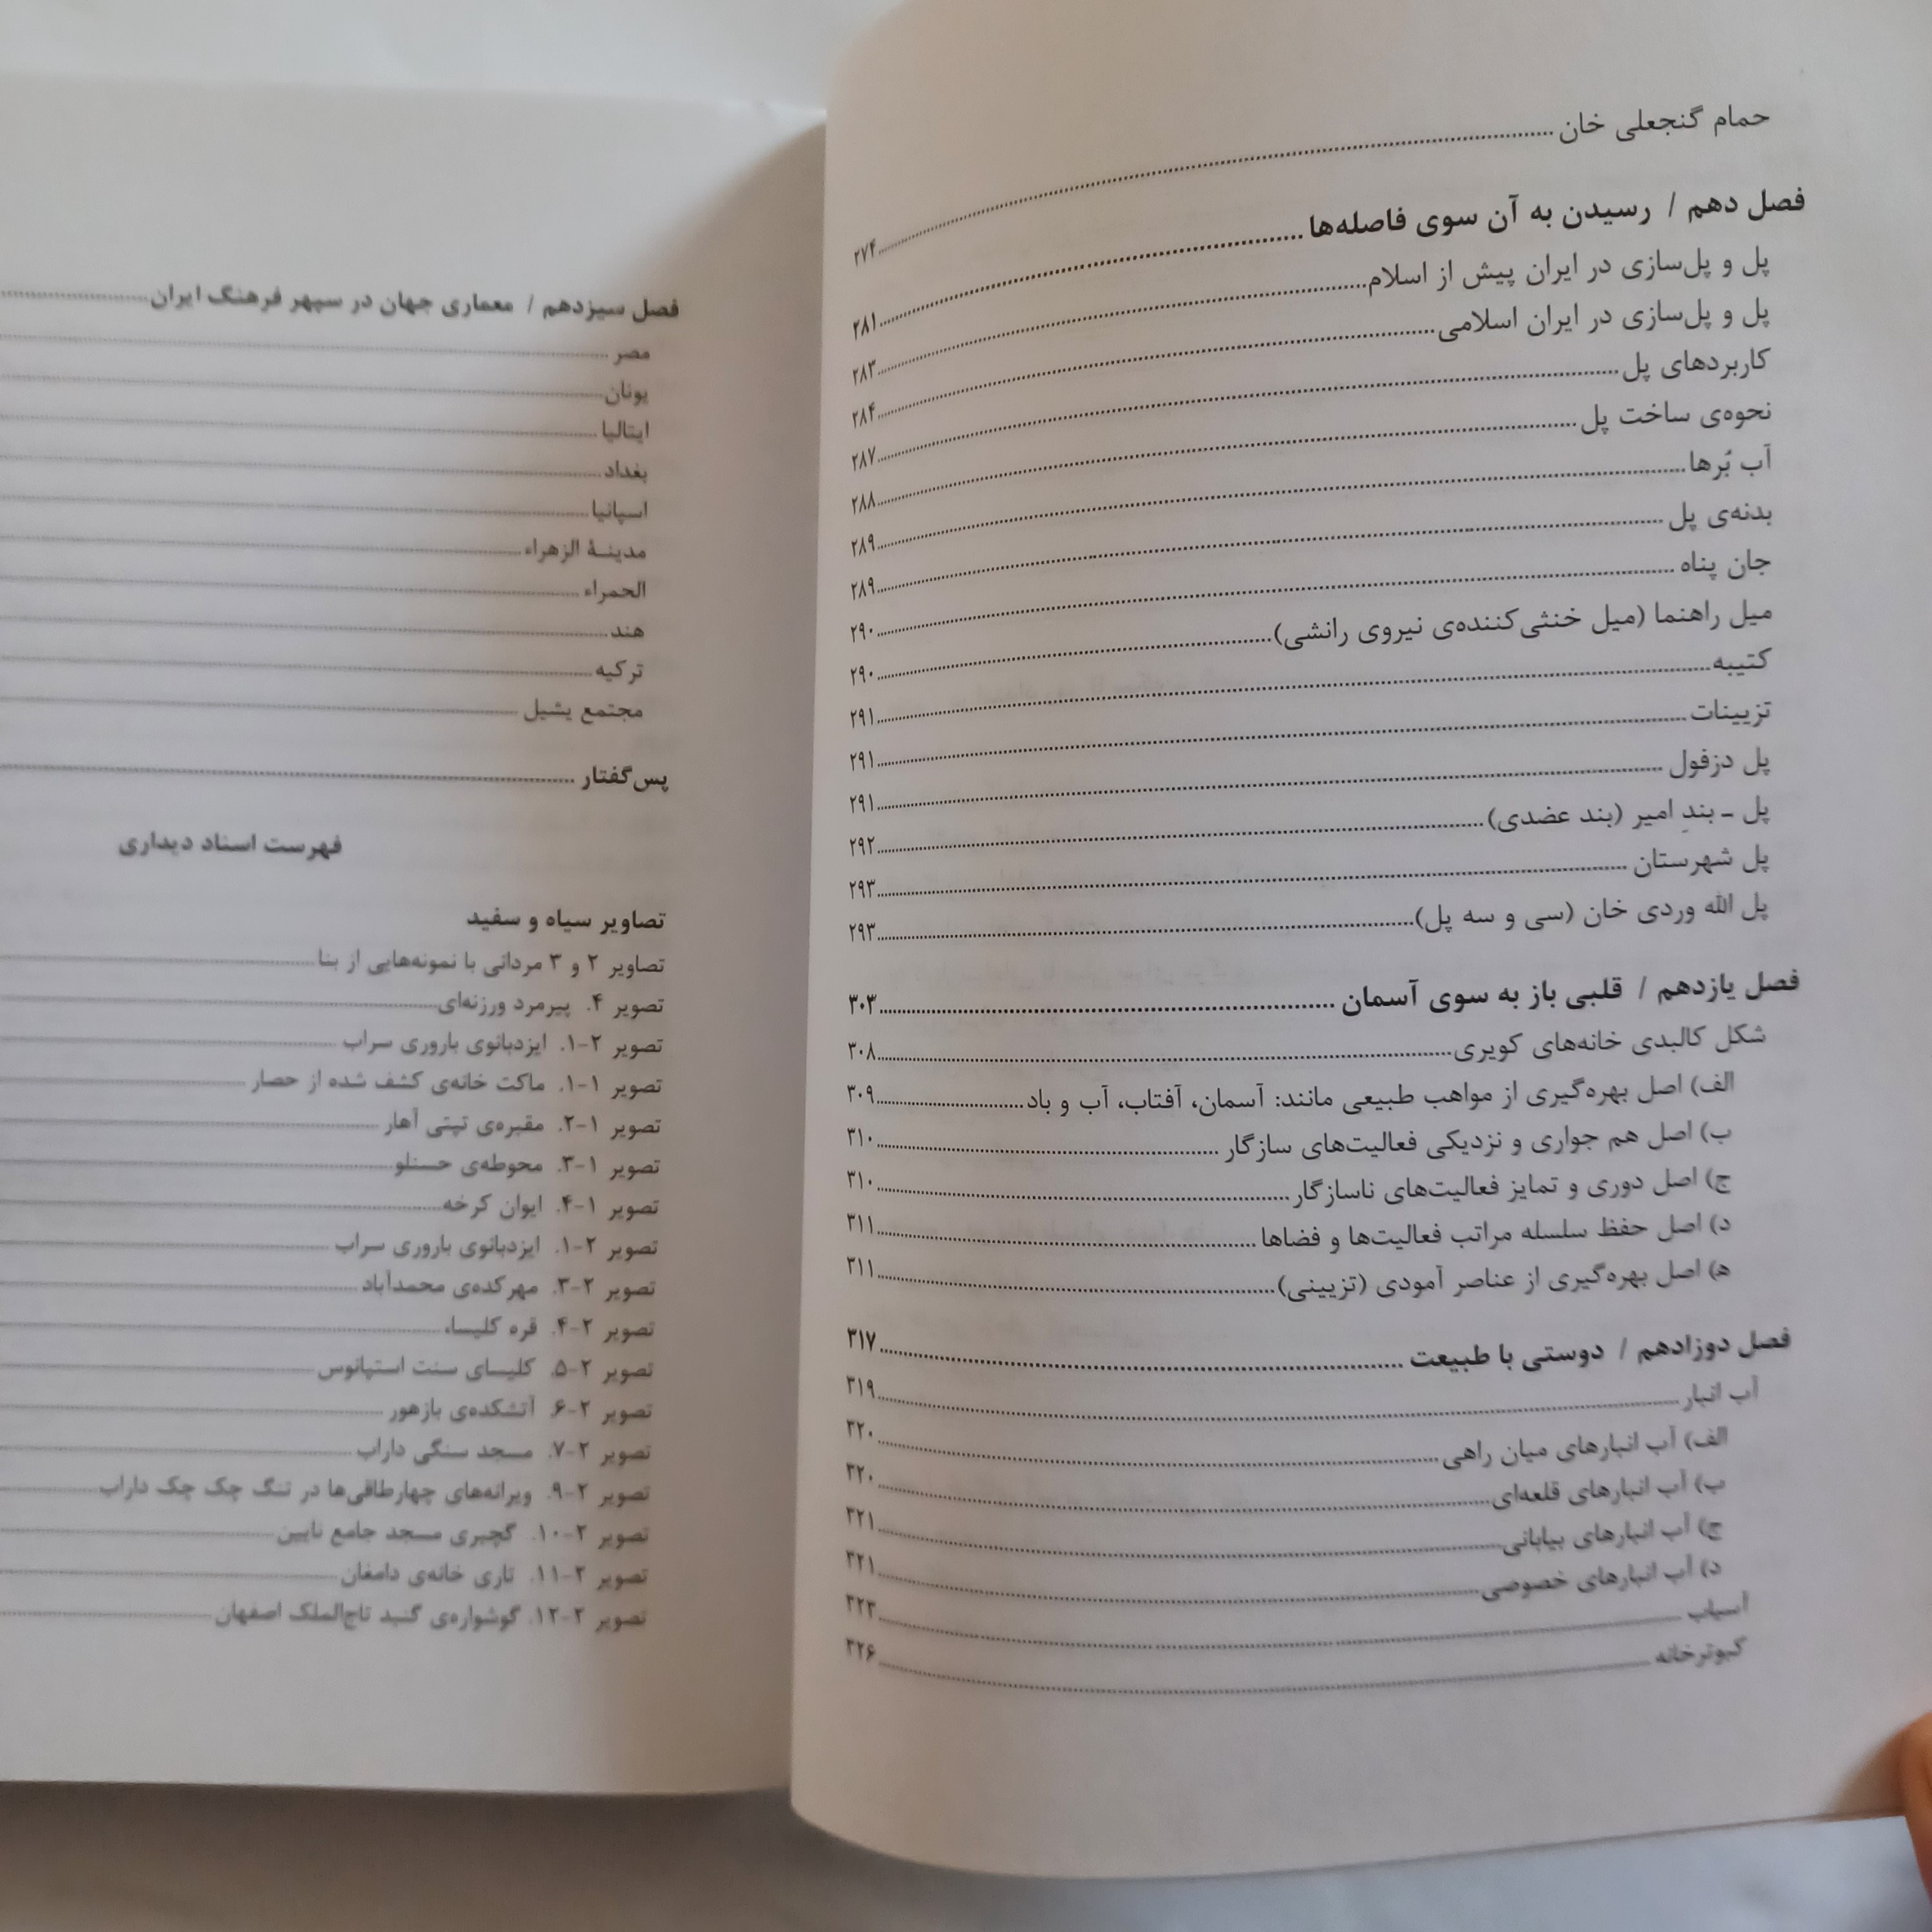 حمام گنجعلی خان ۲۷۴
فصل دهم / رسیدن به آن سوی فاصله‌ها ۲۸۱
پل و پل‌سازی در ایران پیش از اسلام ۲۸۳
پل و پل‌سازی در ایران اسلامی ۲۸۴
کاربردهای پل ۲۸۷
نحوه‌ی ساخت پل ۲۸۸
آب بُرها ۲۸۹
بدنه‌ی پل ۲۸۹
جان پناه ۲۹۰
میل راهنما (میل خنثی‌کننده‌ی نیروی رانشی) ۲۹۰
کتیبه ۲۹۱
تزیینات ۲۹۱
پل دزفول ۲۹۱
پل ـ بندِ امیر (بند عضدی) ۲۹۲
پل شهرستان ۲۹۳
پل الله وردی خان (سی و سه پل) ۲۹۳
فصل یازدهم / قلبی باز به سوی آسمان ۳۰۳
شکل کالبدی خانه‌های کویری ۳۰۸
الف) اصل بهره‌گیری از مواهب طبیعی مانند: آسمان، آفتاب، آب و باد ۳۰۹
ب) اصل هم جواری و نزدیکی فعالیت‌های سازگار ۳۱۰
ج) اصل دوری و تمایز فعالیت‌های ناسازگار ۳۱۰
د) اصل حفظ سلسله مراتب فعالیت‌ها و فضاها ۳۱۱
ه) اصل بهره‌گیری از عناصر آمودی (تزیینی) ۳۱۱
فصل دوزادهم / دوستی با طبیعت ۳۱۷
آب انبار ۳۱۹
الف) آب انبارهای میان راهی ۳۲۰
ب) آب انبارهای قلعه‌ای ۳۲۰
ج) آب انبارهای بیابانی ۳۲۱
د) آب انبارهای خصوصی ۳۲۱
آسیاب ۳۲۳
کبوترخانه ۳۲۶
فصل سیزدهم / معماری جهان در سپهر فرهنگ ایران
مصر
یونان
ایتالیا
بغداد
اسپانیا
مدینـة الزهراء
الحمراء
هند
ترکیه
مجتمع یشیل
پس‌گفتار
فهرست اسناد دیداری
تصاویر سیاه و سفید
تصاویر ۲ و ۳ مردانی با نمونه‌هایی از بنا
تصویر ۴. پیرمرد ورزنه‌ای
تصویر ۲-۱. ایزدبانوی باروری سراب
تصویر ۱-۱. ماکت خانه‌ی کشف شده از حصار
تصویر ۱-۲. مقبره‌ی تپتی آهار
تصویر ۱-۳. محوطه‌ی حسنلو
تصویر ۱-۴. ایوان کرخه
تصویر ۲-۱. ایزدبانوی باروری سراب
تصویر ۲-۳. مهرکده‌ی محمدآباد
تصویر ۲-۴. قره کلیسا،
تصویر ۲-۵. کلیسای سنت استپانوس
تصویر ۲-۶. آتشکده‌ی بازهور
تصویر ۲-۷. مسجد سنگی داراب
تصویر ۲-۹. ویرانه‌های چهارطاقی‌ها در تنگ چک چک داراب
تصویر ۲-۱۰. گچبری مسجد جامع نایین
تصویر ۲-۱۱. تاری خانه‌ی دامغان
تصویر ۲-۱۲. گوشواره‌ی گنبد تاج‌الملک اصفهان